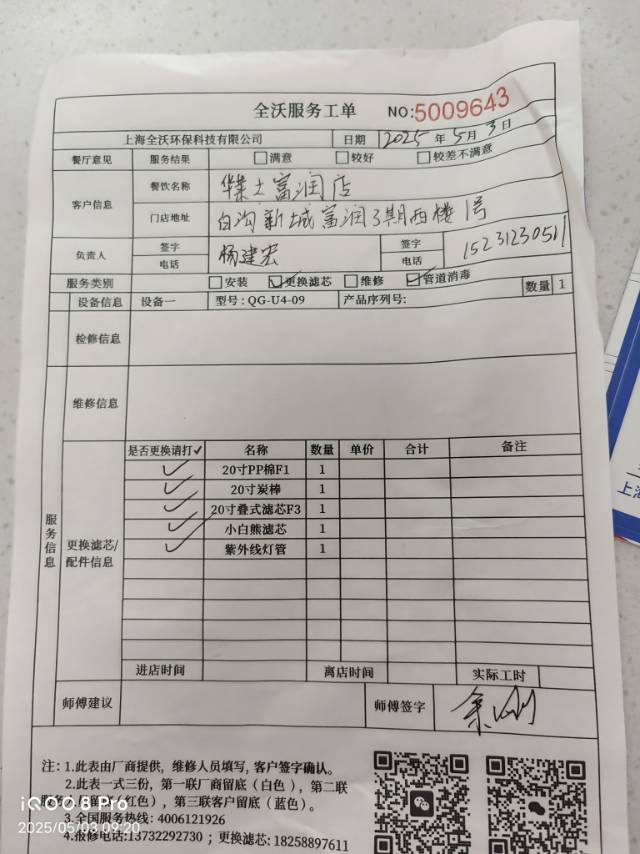 全沃服务工单 NO:5009643
上海全沃环保科技有限公司 日期 2025年5月3日
餐厅意见 服务结果 满意 较好 较差不满意
客户信息 餐饮名称 华莱士富润店
门店地址 白沟新城富润3期西楼1号
负责人 签字 杨建宏 签字
电话 电话 15231230511
服务类别 安装 ✓更换滤芯 维修 ✓管道消毒
设备信息 设备一 型号:QG-U4-09 产品序列号: 数量 1
检修信息
维修信息
服务信息
更换滤芯/配件信息
是否更换请打✓ 名称 数量 单价 合计 备注
✓ 20寸PP棉F1 1
✓ 20寸炭棒 1
✓ 20寸叠式滤芯F3 1
✓ 小白熊滤芯 1
✓ 紫外线灯管 1
进店时间 离店时间 实际工时
师傅建议 师傅签字
注:1.此表由厂商提供，维修人员填写,客户签字确认。
2.此表一式三份，第一联厂商留底(白色)，第二联
(红色)，第三联客户留底(蓝色)。
3.全国服务热线:4006121926
4.报修电话:13732292730；更换滤芯:18258897611
iQOO 8 Pro
2025/05/03 09:20
上海